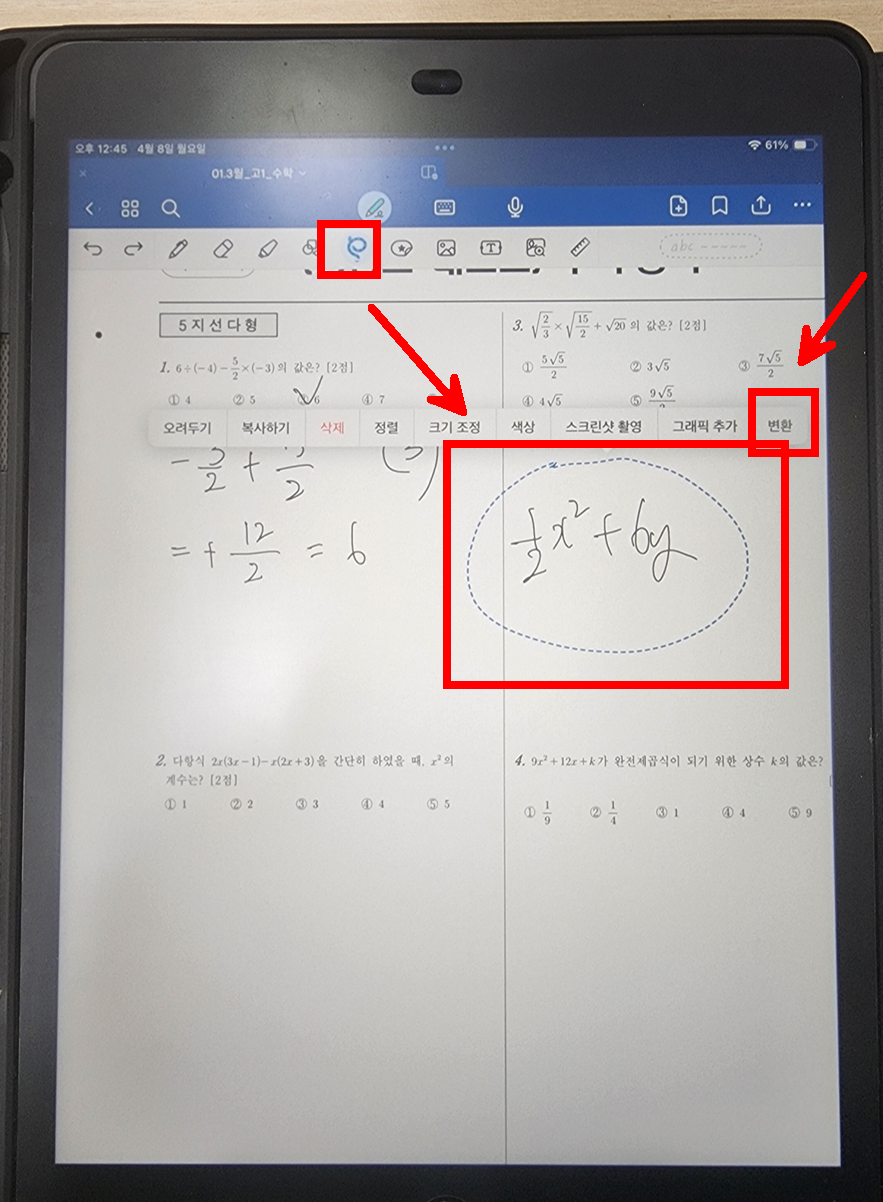 오후 12:45 4월 8일 월요일
61%
01.3월_고1_수학
abc -----
5지선다형
1. 6÷(−4)−5/2×(−3)의 값은? [2점]
① 4 ② 5 ③ 6 ④ 7
3. √(2/3)×√(15/2)+√20의 값은? [2점]
① 5√5/2 ② 3√5 ③ 7√5/2
④ 4√5 ⑤ 9√5/2
오려두기 복사하기 삭제 정렬 크기 조정 색상 스크린샷 촬영 그래픽 추가 변환
= + 12/2 = 6
1/2x² + 6y
2. 다항식 2x(3x−1)−x(2x+3)을 간단히 하였을 때, x²의
계수는? [2점]
① 1 ② 2 ③ 3 ④ 4 ⑤ 5
4. 9x²+12x+k가 완전제곱식이 되기 위한 상수 k의 값은?
① 1/9 ② 1/4 ③ 1 ④ 4 ⑤ 9